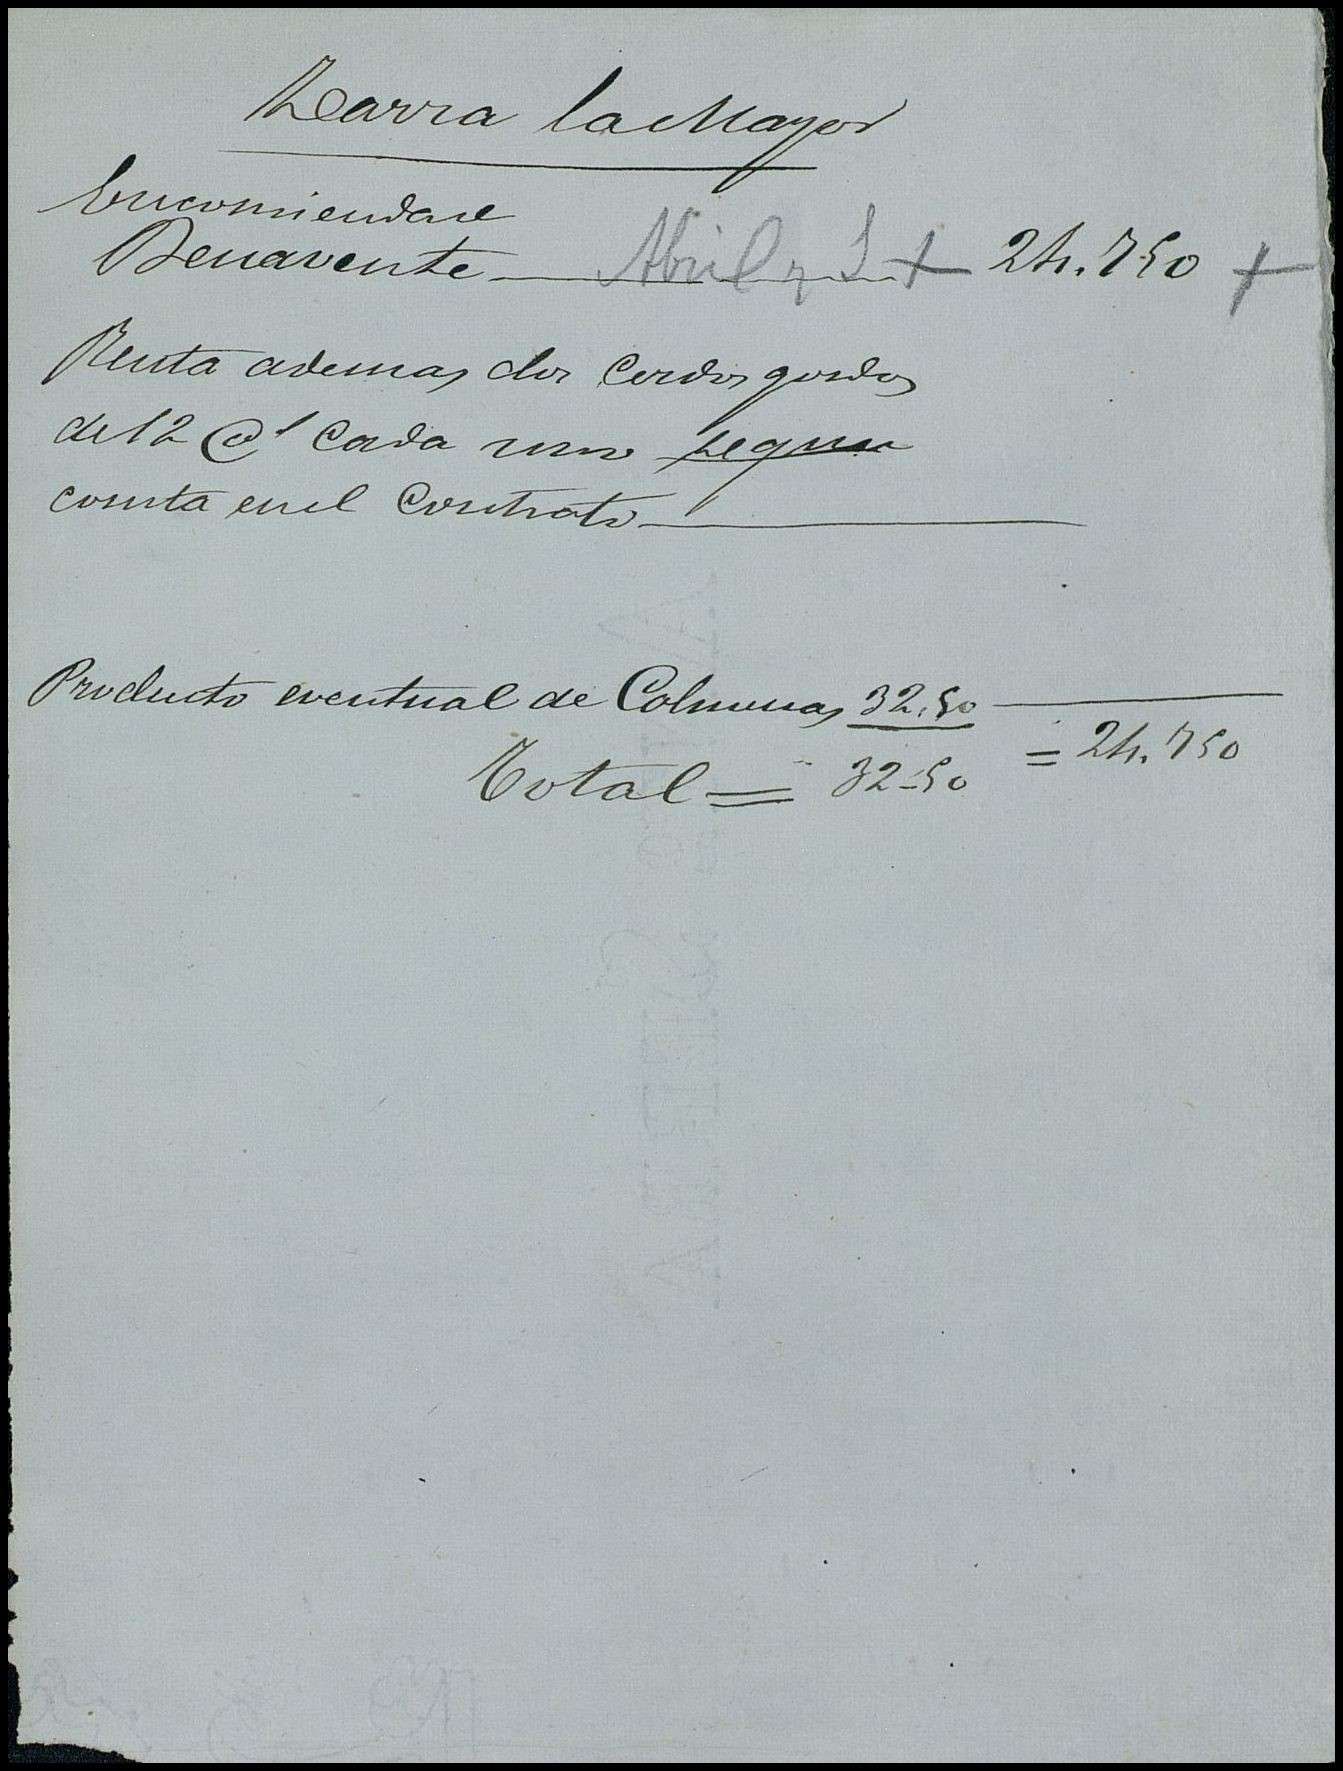 Zarza la Mayor
Encomienda de
Benavente Abril y S + 24.750 +
Renta ademas dos Cerdos gordos
de 12 @s cada uno segun
consta en el Contrato
Producto eventual de Colmenas 32,50
Total = 32-50 = 24.750